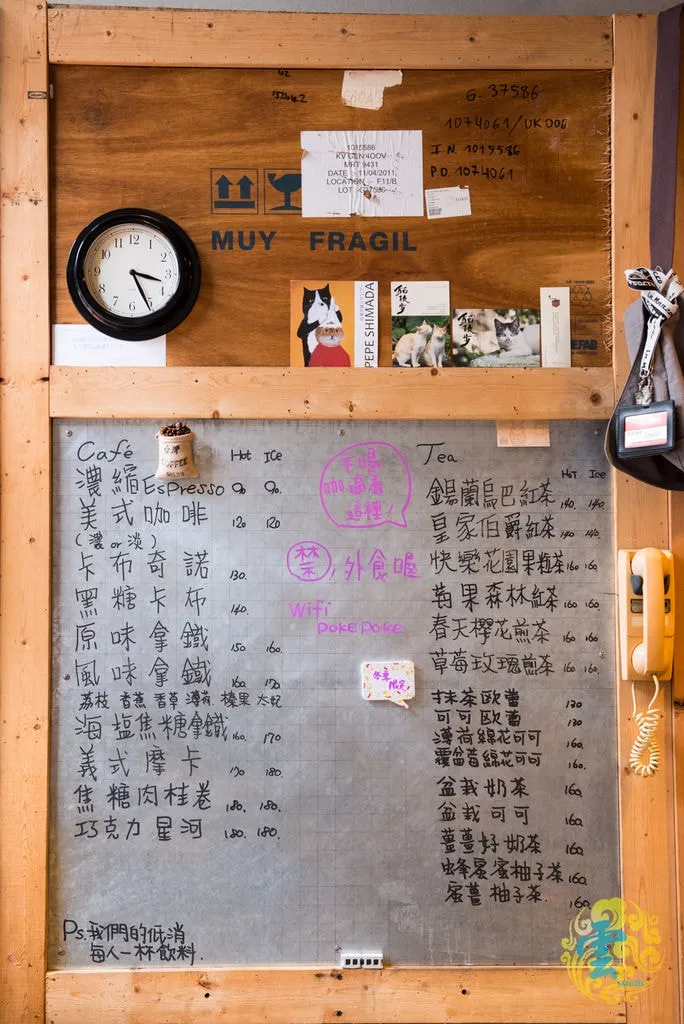 G. 37586
1074061/UK006
I.N. 1015586
P.O. 1074061
1015586
KV GEN 4OOV
MRT 9431
DATE :- 11/04/2011
LOCATION :- F11/B
MUY FRAGIL
12 1 2 3 4 5 6 7 8 9 10 11
PEPE SHIMADA
Café Hot ICe
濃縮Espresso 90 90.
美式咖啡 120 120
(濃 or 淡)
卡布奇諾 130.
黑糖卡布 140.
原味拿鐵 150 160.
風味拿鐵 160. 170
荔枝 香蕉 香草 薄荷 榛果 太妃
海塩焦糖拿鐵 160. 170
義式摩卡 170 180.
焦糖肉桂卷 180. 180.
巧克力星河 180. 180.
Ps.我們的低消
每人一杯飲料.
來喝
咖逼看
這裡!
禁!外食喔
Wifi
pokepoke.
冬季
限定!
Tea
HOT Ice
錫蘭烏巴紅茶 140. 140.
皇家伯爵紅茶 140. 140.
快樂花園果粒茶 160 160.
莓果森林紅茶 160. 160.
春天櫻花煎茶 160. 160.
草莓玫瑰煎茶 160. 160.
抹茶歐蕾 130
可可歐蕾 130
薄荷綿花可可 160.
覆盆莓綿花可可 160.
盆栽奶茶 160.
盆栽可可 160.
薑薑好奶茶 160.
蜂蜜蜜柚子茶 160.
蜜薑柚子茶. 160.
雲